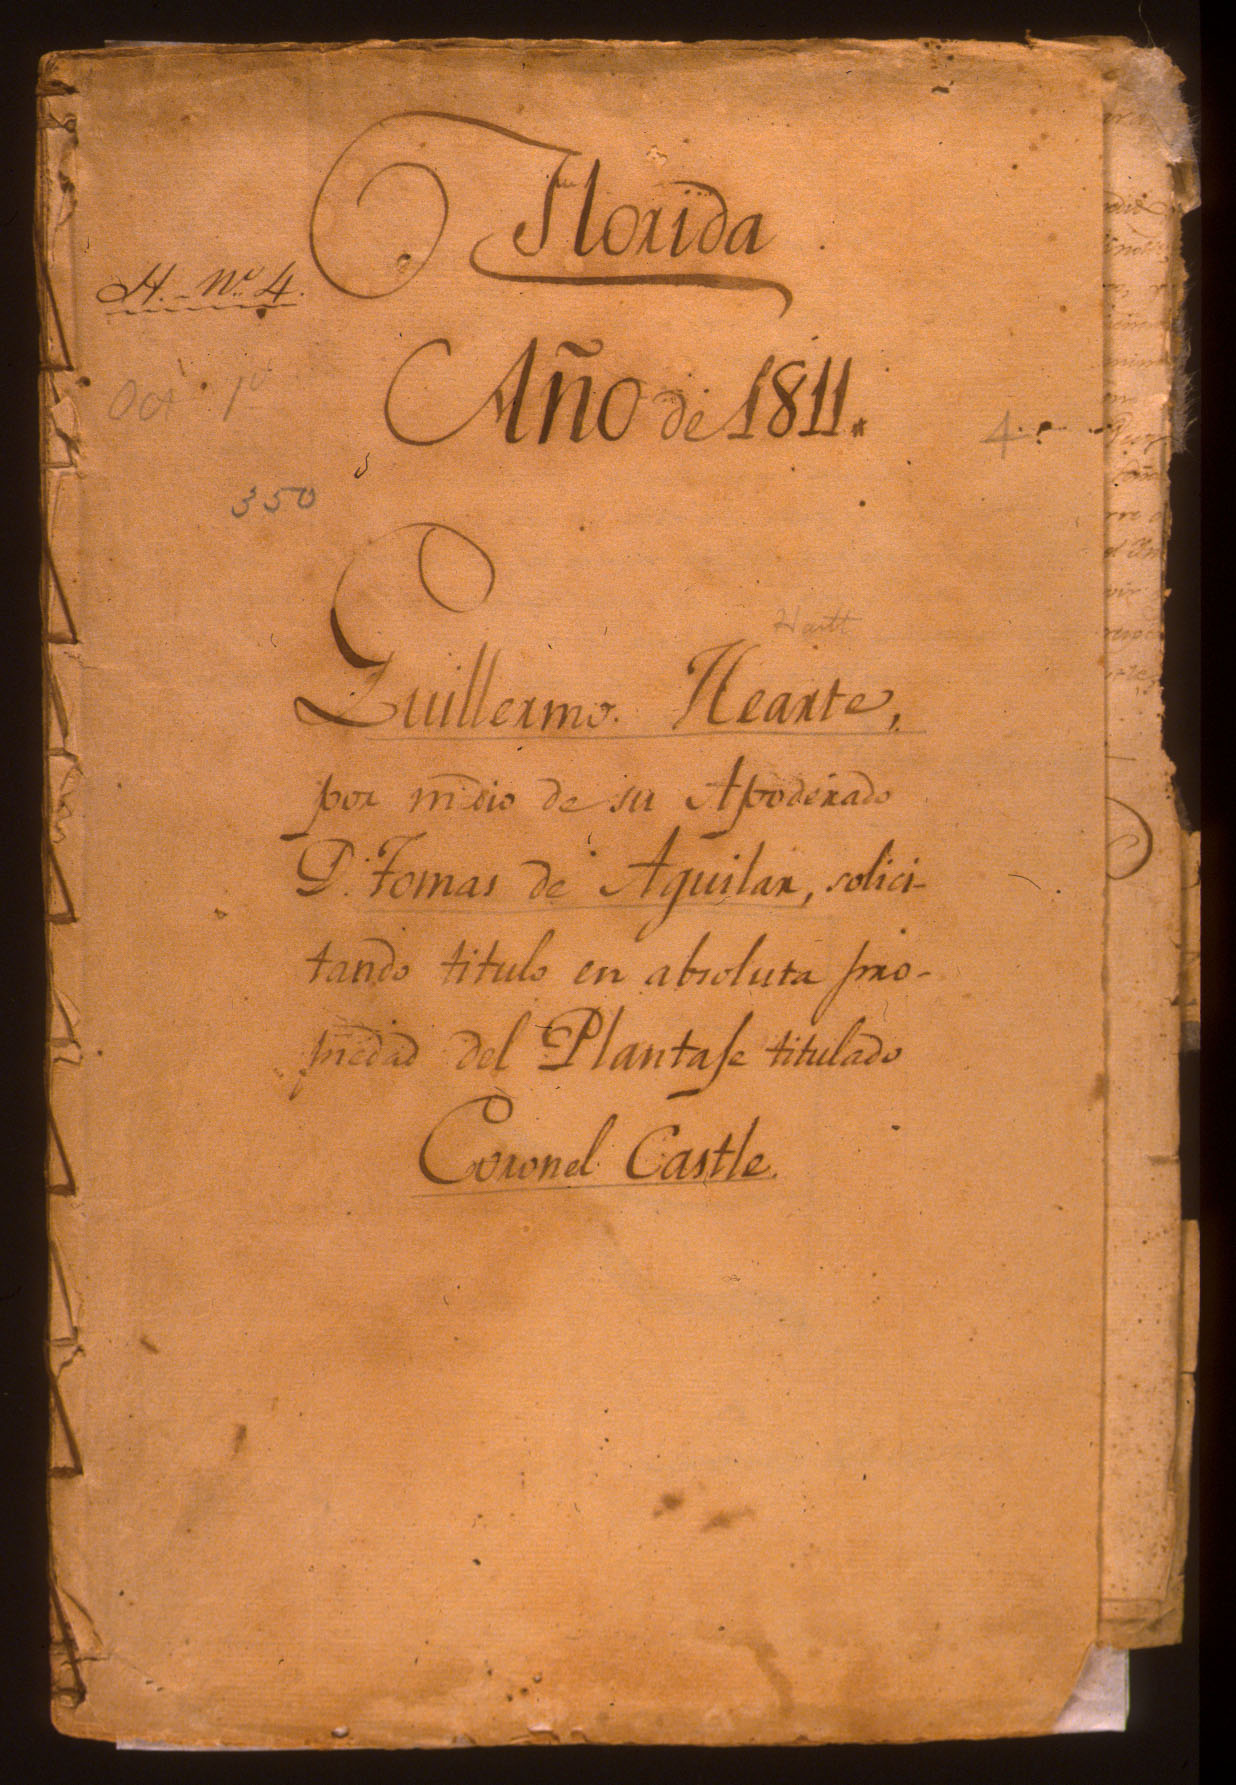 Florida
H. - No. 4.
Año de 1811.
Oct
4
350
Hartt
Guillermo Hearte,
por medio de su Apoderado
D. Tomas de Aguilar, solici-
tando titulo en absoluta pro-
piedad del Plantaje titulado
Coronel Castle.